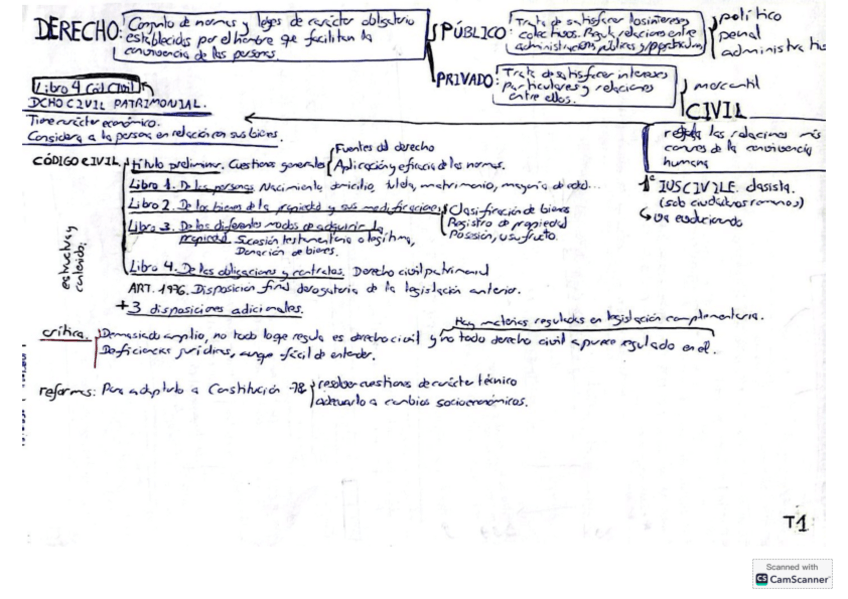 DERECHO: Conjunto de normas y leyes de carácter obligatorio
establecidas por el hombre que facilitan la
convivencia de las personas.
PÚBLICO: Trata de satisfacer los intereses
colectivos. Regula relaciones entre
administraciones públicas y particulares
político
penal
administrativo
PRIVADO: Trata de satisfacer intereses
particulares y relaciones
entre ellos.
mercantil
CIVIL
regula las relaciones más
comunes de la convivencia
humana
1º IUS CIVILE. clasista.
(solo ciudadanos romanos)
↳ va evolucionando
Libro 4 Cód. Civil
DCHO CIVIL PATRIMONIAL.
Tiene carácter económico.
Considera a la persona en relación con sus bienes.
CÓDIGO CIVIL
estructura y
contenido:
título preliminar. Cuestiones generales
Fuentes del derecho
Aplicación y eficacia de las normas.
Libro 1. De las personas Nacimiento, domicilio, tutela, matrimonio, mayoría de edad...
Libro 2. De los bienes de la propiedad y sus modificaciones
Clasificación de bienes
Registro de propiedad
Posesión, usufructo.
Libro 3. De los diferentes modos de adquirir la
propiedad. Sucesión testamentaria o legítima,
Donación de bienes.
Libro 4. De las obligaciones y contratos. Derecho civil patrimonial
ART. 1976. Disposición final derogatoria de la legislación anterior.
+ 3 disposiciones adicionales.
Hay materias reguladas en legislación complementaria.
crítica. Demasiado amplio, no todo lo que regula es derecho civil y no todo derecho civil aparece regulado en él.
Deficiencias jurídicas, aunque fácil de entender.
reformas: Para adaptarlo a Constitución -78
resolver cuestiones de carácter técnico
adecuarlo a cambios socioeconómicos.
T1
Scanned with
CS CamScanner